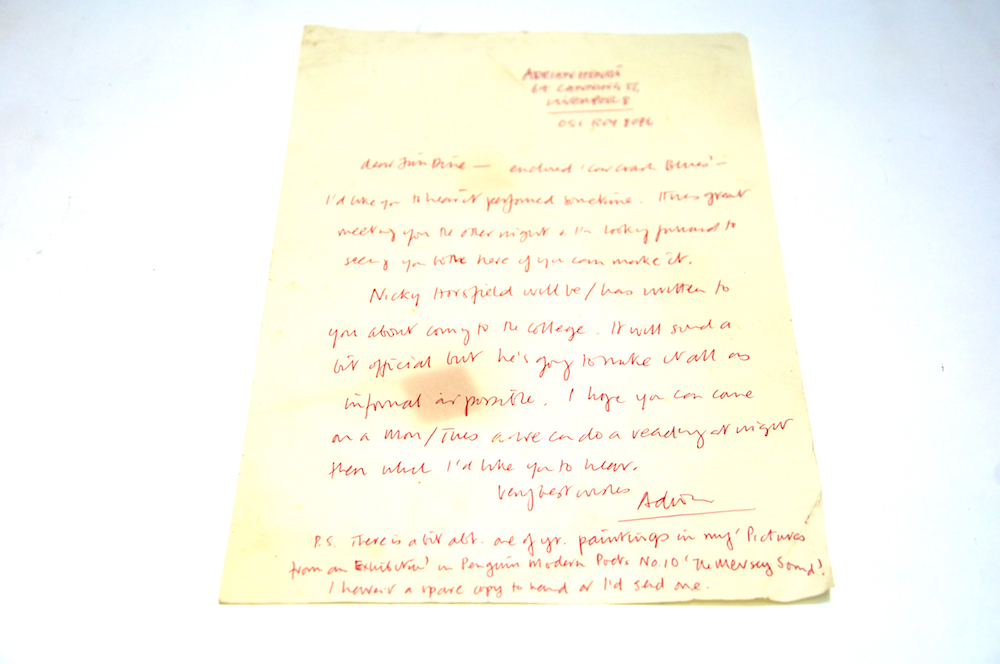 ADRIAN HENRI
64 CANNING ST,
LIVERPOOL 8
051 ROY
dear Jim Dine — enclosed 'Car Crash Blues' –
I'd like you to hear it performed sometime. It was great
meeting you the other night & I'm looking forward to
seeing you both here if you can make it.
Nicky Horsfield will be/has written to
you about coming to the college. It will sound a
bit official but he's going to make it all as
informal as possible. I hope you can come
on a Mon/Tues & we can do a reading at night
then which I'd like you to hear.
Very best wishes
Adrian
P.S. There is a bit abt. one of yr. paintings in my 'Pictures
from an Exhibition' in Penguin Modern Poets No.10 'The Mersey Sound'.
I haven't a spare copy to hand or I'd send one.